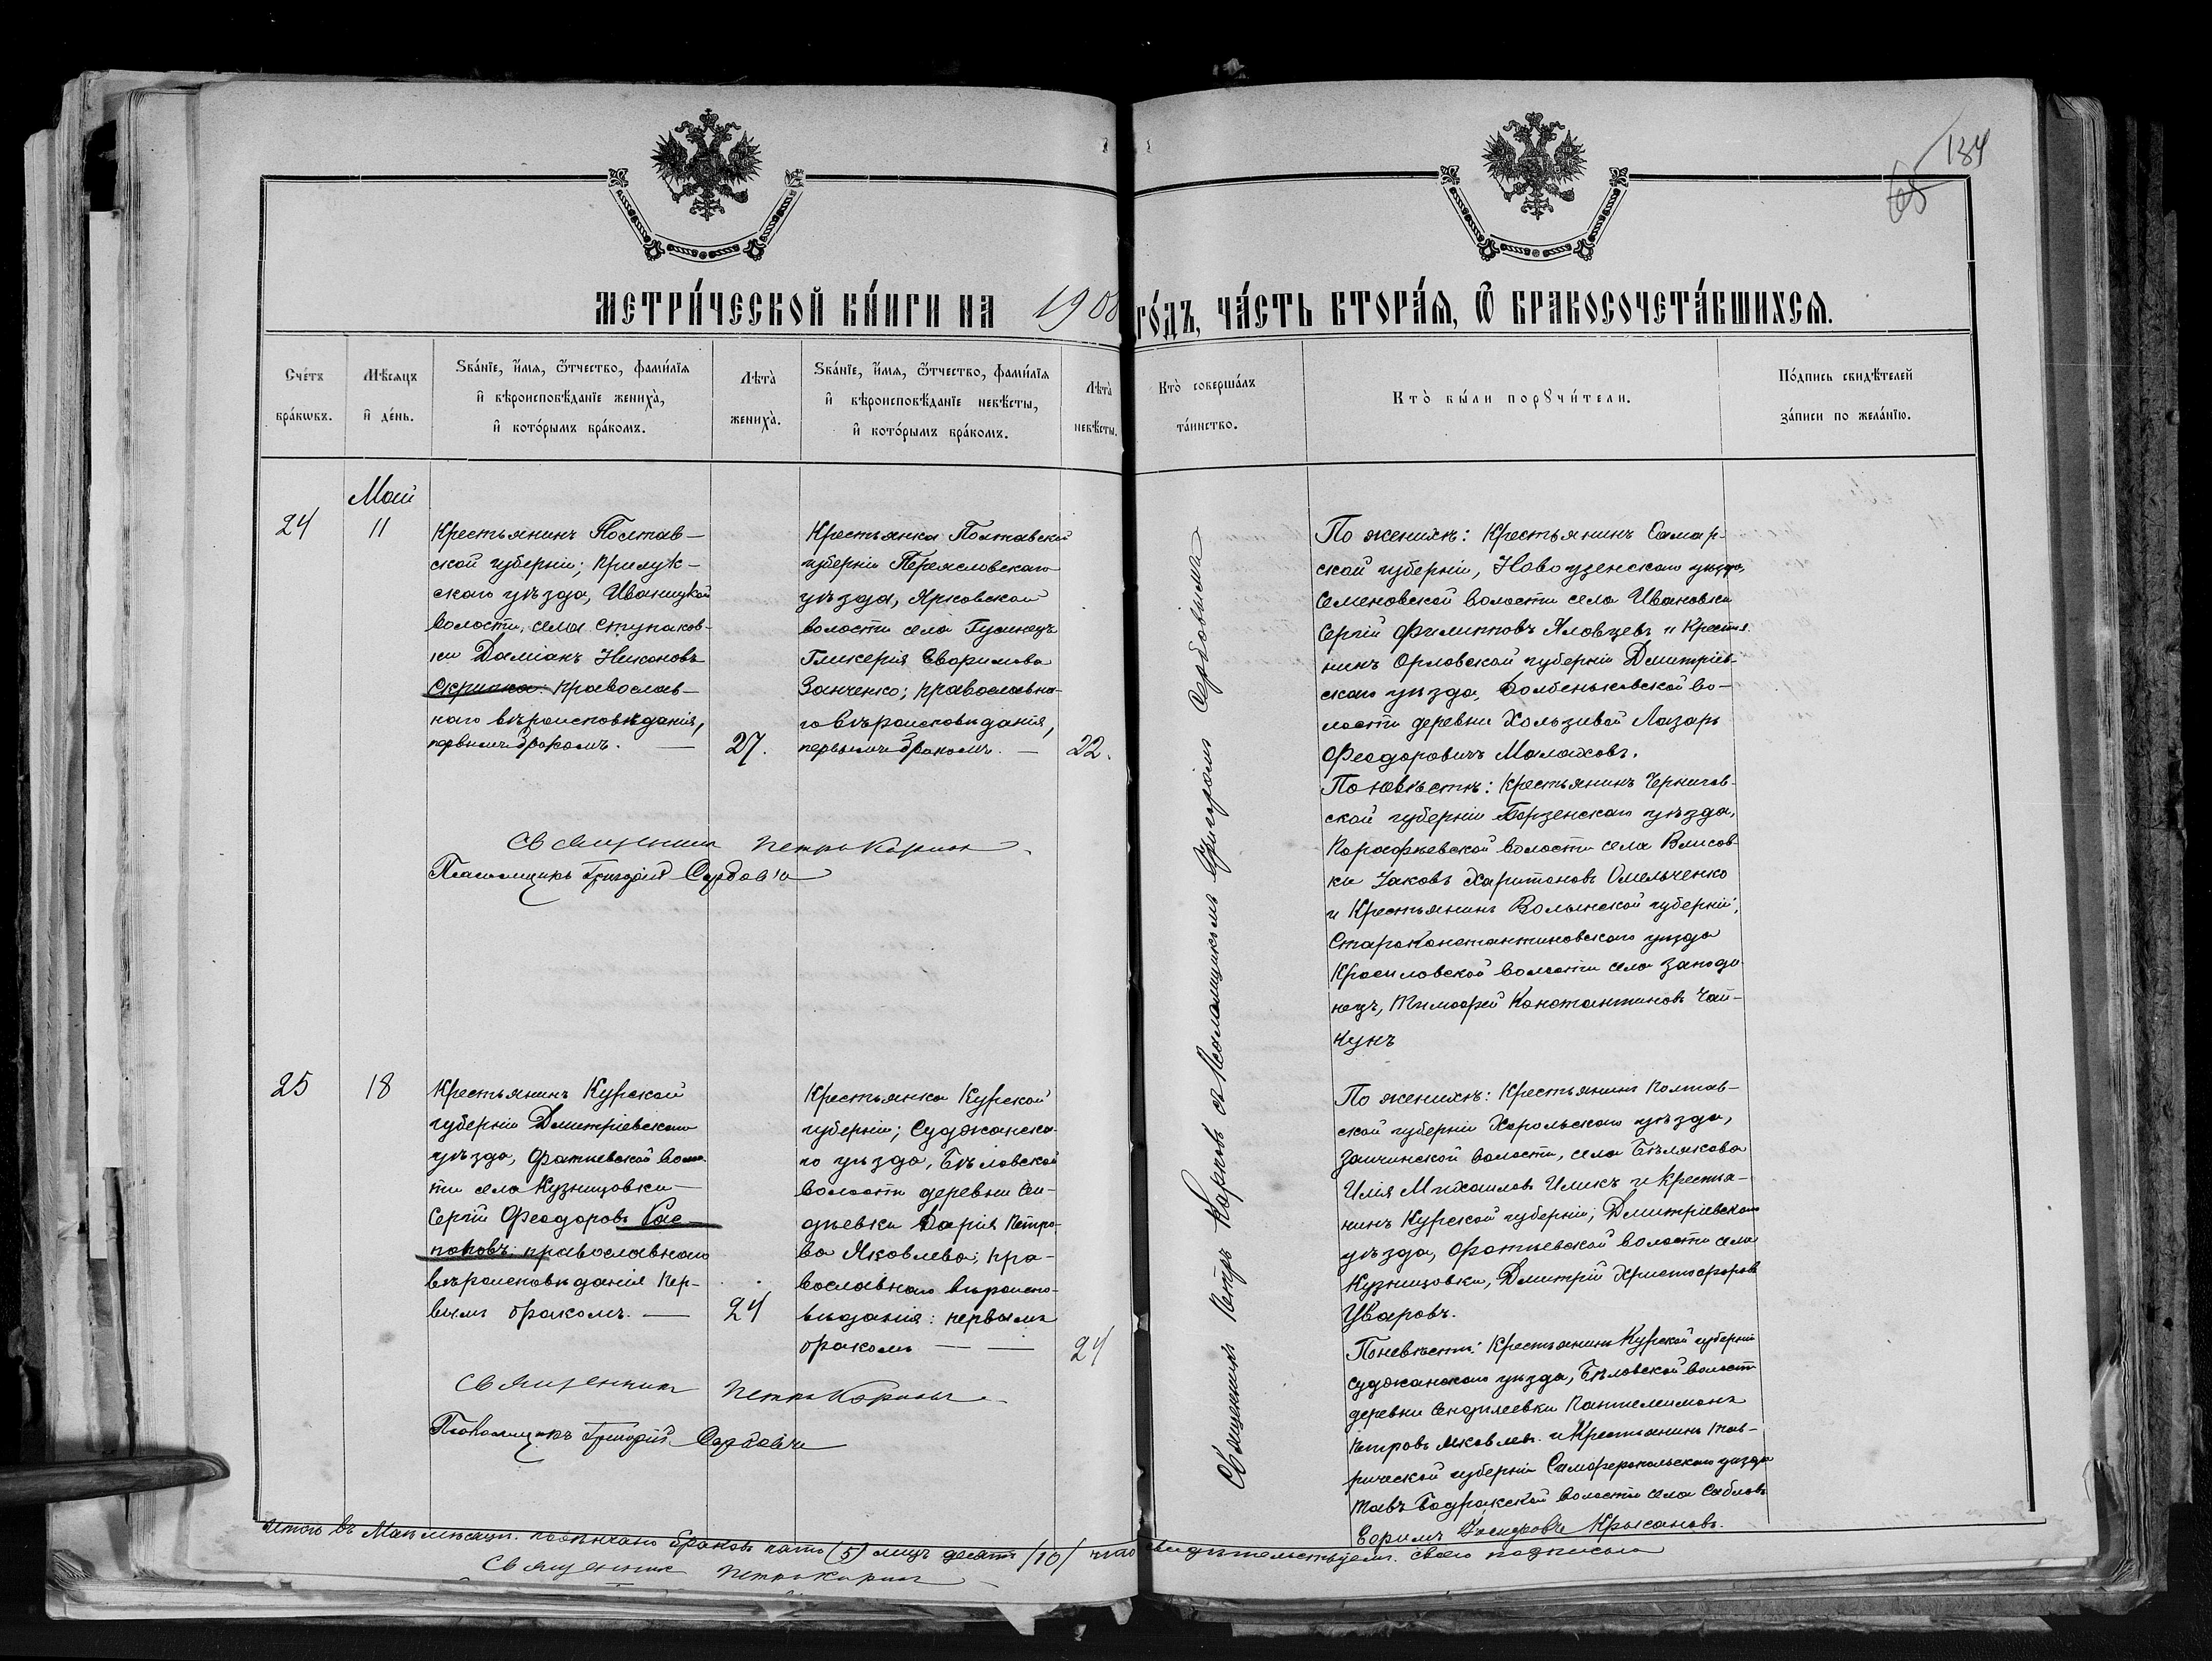 134
65
МЕТРИ́ЧЕСКОЙ КНИ́ГИ НА 1908 ГО́ДЪ, ЧА́СТЬ ВТОРА́Я, Ѿ БРАКОСОЧЕТА́ВШИХСЯ.
Сче́тъ бра́кѡвъ.
Мѣ́сяцъ и҆ де́нь.
Ѕва́нїе, и҆́мя, ѻ҆́тчество, фами́лїя
и҆ вѣроисповѣ́данїе жениха̀,
и҆ кото́рымъ бра́комъ.
Лѣта̀ жениха̀.
Ѕва́нїе, и҆́мя, ѻ҆́тчество, фами́лїя
и҆ вѣроисповѣ́данїе невѣ́сты,
и҆ кото́рымъ бра́комъ.
Лѣта̀ невѣ́сты.
Кто̀ соверша́лъ та́инство.
Кто̀ бы́ли порꙋчи́тели.
По́дпись свидѣ́телей за́писи по жела́нїю.
Май
24
11
Крестьянинъ Полтав-
ской губерніи; Прилук-
скаго уѣзда, Иваницкой
волости, села Ступаков-
ки Даміанъ Никоновъ
Скрипка: православ-
наго вѣроисповѣданія,
первымъ бракомъ. —
27.
Крестьянка Полтавской
губерніи Переясловскаго
уѣзда, Ярковской
волости села Гусинецъ
Гликерія Ефремова
Занченко; православна-
го вѣроисповѣданія,
первымъ бракомъ. —
22.
Священникъ Петръ Коринъ
Псаломщикъ Григорій
Священникъ Петръ Коринъ съ Псаломщикомъ Григоріемъ
По женихѣ: Крестьянинъ Самар-
ской губерніи, Новоузенскаго уѣзда,
Семеновской волости села Ивановки
Сергій Филипповъ Яловцевъ и Крестья-
нинъ Орловской губерніи Дмитріев-
скаго уѣзда, во-
лости деревни Лазарь
Феодоровичъ Малаховъ.
По невѣстѣ: Крестьянинъ Чернигов-
ской губерніи Борзенскаго уѣзда,
волости села
ки Іаковъ Харитоновъ Омельченко
и Крестьянинъ Волынской губерніи,
Староконстантиновскаго уѣзда
Красиловской волости села
нецъ, Тимофей Константиновъ Чай-
кунъ
25
18
Крестьянинъ Курской
губерніи Дмитріевскаго
уѣзда, Фатѣевской волос-
ти села Кузнецовки —
Сергій Феодоровъ Рас-
поповъ: православнаго
вѣроисповѣданія пер-
вымъ бракомъ. —
24
Крестьянка Курской
губерніи; Суджанска-
го уѣзда, Бѣловской
волости деревни
Дарія Петро-
ва Яковлева; пра-
вославнаго вѣроиспо-
вѣданія: первымъ
бракомъ — —
24
Священникъ Петръ Коринъ
Псаломщикъ Григорій
По женихѣ: Крестьянинъ Полтав-
ской губерніи Хорольскаго уѣзда,
волости, села Бѣлякова
Илія Михаиловъ Иликъ и Крестья-
нинъ Курской губерніи; Дмитріевскаго
уѣзда, Фатѣевской волости села
Кузнецовки, Дмитрій Христофоровъ
Уваровъ.
По невѣстѣ: Крестьянинъ Курской губерніи
Суджанскаго уѣзда, Бѣловской волости
деревни Пантелеимонъ
Петровъ Яковлевъ и Крестьянинъ Тав-
рической губерніи Симферопольскаго уѣзда
Тавъ Бадракской волости села Сабловъ
Ефимъ Крысановъ.
Итого въ Маѣ мѣсяцѣ повѣнчано браковъ пять (5) лицъ десять (10) что свидѣтельствуемъ своею подписью
Священникъ Петръ Коринъ